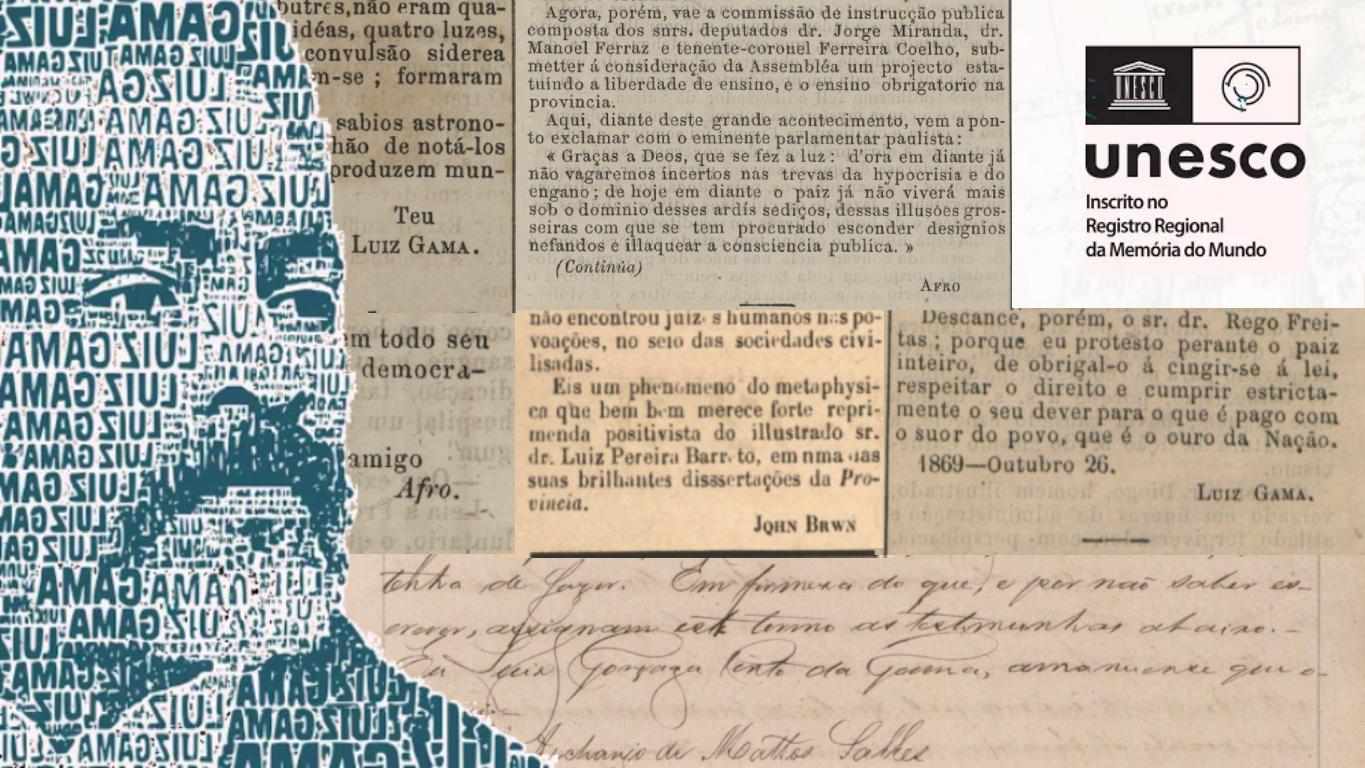 LUIZ GAMA
butres, não eram qua-
idéas, quatro luzes,
convulsão siderea
m-se ; formaram
sabios astrono-
hão de notá-los
produzem mun-
Teu
LUIZ GAMA.
Agora, porém, vae a commissão de instrucção publica
composta dos snrs. deputados dr. Jorge Miranda, dr.
Manoel Ferraz e tenente-coronel Ferreira Coelho, sub-
metter á consideração da Assembléa um projecto esta-
tuindo a liberdade de ensino, e o ensino obrigatorio na
provincia.
Aqui, diante deste grande acontecimento, vem a pon-
to exclamar com o eminente parlamentar paulista:
« Graças a Deos, que se fez a luz : d'ora em diante já
não vagaremos incertos nas trevas da hypocrisia e do
engano ; de hoje em diante o paiz já não viverá mais
sob o dominio desses ardis sediços, dessas illusões gros-
seiras com que se tem procurado esconder designios
nefandos e illaquear a consciencia publica. »
(Continúa)
AFRO
UNESCO
unesco
Inscrito no
Registro Regional
da Memória do Mundo
em todo seu
democra-
amigo
Afro.
não encontrou juiz s humanos nas po-
voações, no seio das sociedades civi-
lisadas.
Eis um phenomeno do metaphysi-
ca que bem bem merece forte repri-
menda positivista do illustrado sr.
dr. Luiz Pereira Barreto, em nma das
suas brilhantes disssertações da Pro-
vincia.
JOHN BRWN
Descance, porém, o sr. dr. Rego Frei-
tas ; porque eu protesto perante o paiz
inteiro, de obrigal-o á cingir-se á lei,
respeitar o direito e cumprir estricta-
mente o seu dever para o que é pago com
o suor do povo, que é o ouro da Nação.
1869—Outubro 26.
LUIZ GAMA.
tenha de fazer. Em firmeza do que, e por não saber es-
crever, assignam este termo as testimunhas abaixo.—
Eu Luiz Gonzaga Pinto da Gama, amanuense que o
Archanjo de Mattos Salles